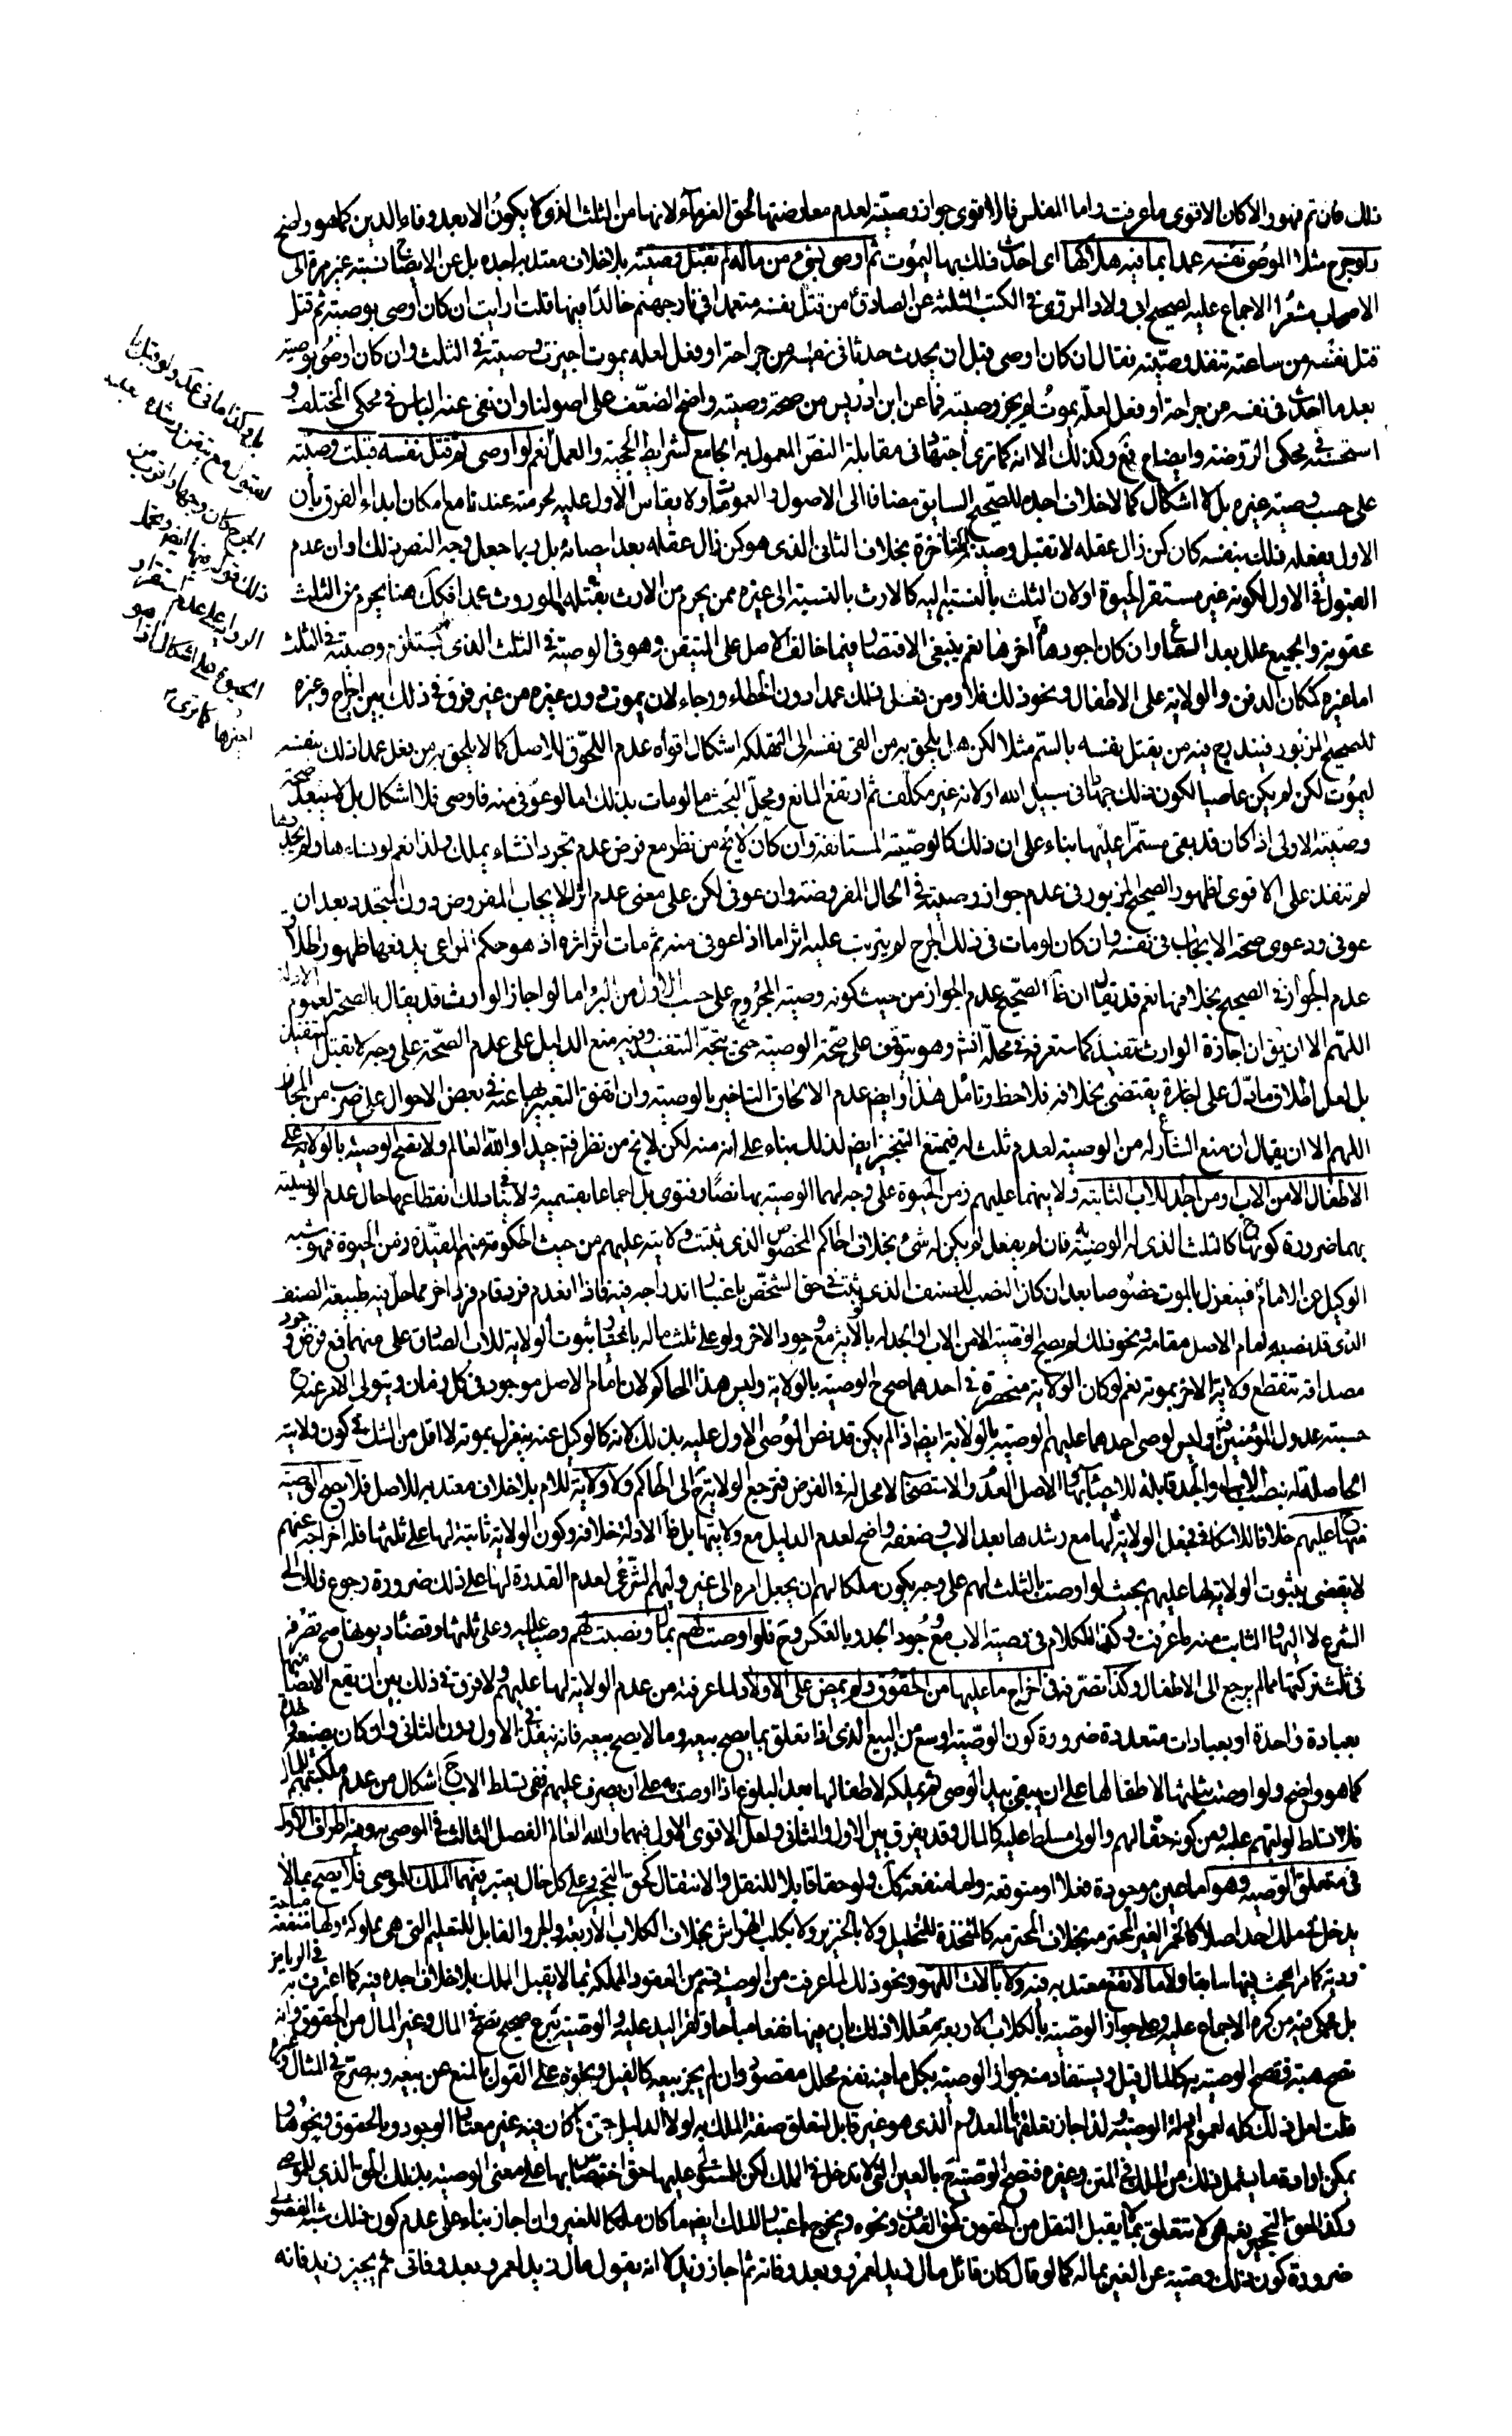 ذلك فان تم فهو والا كان الاقوى ما عرفت واما المفلس فالاقوى جواز وصيته لعدم معارضتها لحق الغرماء لانها من الثلث الذى لا يكون الا بعد وفاء الدين كما هو واضح
ولو جرح مثلا الموصى نفسه عمدا بما فيه هلاكها اى احدث ذلك بها ليموت ثم اوصى بشىء من ماله لم تقبل وصيته بلا خلاف معتد به اجده بل عن الايضاح نسبته غير مرة الى
الاصحاب مشعرا بالاجماع عليه لصحيح ابى ولاد المروى فى الكتب الثلثة عن الصادق من قتل نفسه متعمدا فى نار جهنم خالدا فيها قلت ارايت ان كان اوصى بوصية ثم قتل
قتل نفسه من ساعته تنفذ وصيته فقال ان كان اوصى قبل ان يحدث حدثا فى نفسه من جراحة او فعل لعله يموت اجيزت وصيته فى الثلث وان كان اوصى بوصية
بعد ما احدث فى نفسه من جراحة او فعل لعله يموت لم يجز وصيته فما عن ابن ادريس من صحة وصيته واضح الضعف على اصولنا وان نفى عنه الباس فى محكى المختلف و
استحسنه فى محكى الروضة وايضاح نع وكذلك الا انه كما ترى اجتهاد فى مقابلة النص المعمول به الجامع لشرايط الحجية والعمل نعم لو اوصى ثم قتل نفسه قبلت وصيته
على حسب وصية غيره بل لا اشكال كما لا خلاف اجده للصحيح السابق مضافا الى الاصول والعمومات ولا يقاس الاول عليه لحرمته عندنا مع امكان ابداء الفرق بان
الاول بفعله ذلك بنفسه كان كمن زال عقله لا تقبل وصيته المتاخرة بخلاف الثانى الذى هو كمن زال عقله بعد ايصائه بل ربما جعل وجه النص بذلك او ان عدم
القبول فى الاول لكونه غير مستقر الحيوة او لان الثلث بالنسبة اليه كالارث بالنسبة الى غيره ممن يحرم من الارث بقتله الموروث عمدا فكك هنا يحرم من الثلث
عقوبة والجميع علل بعد السماع وان كان اجودها اخرها نعم ينبغى الاقتصار فيما خالف الاصل على المتيقن وهو فى الوصية فى الثلث الذى يستلزم وصيته فى الثلث
اما غيره كمكان الدفن والولاية على الاطفال ونحو ذلك فلا ومن يفعل ذلك عمدا دون الخطاء ورجاء لان يموت دون غيره من غير فرق فى ذلك بين الجراح وغيره
للصحيح المزبور فيندرج فيه من يقتل نفسه بالسم مثلا لكن هل يلحق به من القى نفسه الى التهلكة اشكال اقواه عدم اللحوق للاصل كما لا يلحق به من فعل عمدا ذلك بنفسه
ليموت لكن لم يكن عاصيا لكون ذلك جهادا فى سبيل الله او لانه غير مكلف ثم ارتفع المانع ومحل البحث ما لو مات بذلك اما لو عوفى منه فاوصى فلا اشكال بل لا يبعد صحة
وصيته الاولى اذا كان قد بقى مستمرا عليها بناء على ان ذلك كالوصية المستانفة وان كان لا يخ من نظر مع فرض عدم تجرد انشاء يملك ولذا نعم لو نساها ولم يجددها
لم تنفذ على الاقوى لظهور الصحيح المزبور فى عدم جواز وصيته فى الحال المفروضة وان عوفى لكن على معنى عدم اثر للايجاب المفروض دون المتجدد بعد ان
عوفى ودعوى صحة الايجاب فى نفسه وان كان لو مات فى ذلك الجرح لم يترتب عليه اثر اما اذا عوفى منه ثم مات اثر اثره اذ هو حكم المراعى يدفعها ظهور اطلاق
عدم الجواز فى الصحيح بخلافها نعم قد يقال ان ظ الصحيح عدم الجواز من حيث كونه وصية المجروح على حسب الاول من البر اما لو اجاز الوارث قد يقال بالصحة لعموم الادلة
اللهم الا ان يق ان اجازة الوارث تنفيذ كما ستعرفه فى محله انش وهو يتوقف على صحة الوصية حتى يتجه التنفيذ وفيه منع الدليل على عدم الصحة على وجه لا تقبل التنفيذ
بل لعل اطلاق ما دل على اجازة يقتضى بخلافه فلاحظ وتامل هذا وايضا عدم الحاق التنجيز بالوصية وان اتفق التعبير بها عنه فى بعض الاحوال على ضرب من المجاز
اللهم الا ان يقال ان منع الشارع له من الوصية لعدم ثلث له فيمتنع التنجيز ايضا لذلك بناء على انه منه لكن لا يخ من نظر فتم جيدا والله العالم ولا تصح الوصية بالولاية على
الاطفال الا من الاب ومن الجد للاب الثابتة ولايتهما عليهم زمن الحيوة على وجه لهما الوصية بها نصا وفتوى بل اجماعا بقسميه ولا ينافى ذلك انقطاعها حال عدم الوصية
بهما ضرورة كونها كالثلث الذى له الوصية به فان لم يفعل لم يكن له شىء بخلاف الحاكم المخصوص الذى ثبتت ولايته عليهم من حيث الحكومة منهم المقيدة زمن الحيوة فهو شبه
الوكيل عن الامام فينعزل بالموت خصوصا بعد ان كان النصب للصنف الذى يثبت فى حق الشخص باعتبار اندراجه فيه فاذا انعدم فرد قام فرد اخر مما حل فيه طبيعة الصنف
الذى قد نصبه امام الاصل مقامه ونحو ذلك لم يصح الوصية الا من الاب او الجد له بالولاية مع وجود الاخر ولو على ثلث ماله باعتبار ثبوت الولاية للاب الصادق على منهما فمع فرض وجود
مصداقه تنقطع ولاية الاخر بموته نعم لو كان الولاية منحصرة فى احدهما صح ح الوصية بالولاية وليس هذا الحاكم لان امام الاصل موجود فى كل زمان ويتولى الامر عنه ح
حسبة عدول المؤمنين وليس لوصى احدهما عليهم الوصية بالولاية ايضا اذا لم يكن قد نص الموصى الاول عليه بذلك لانه كالوكيل عنه ينعزل بموته لا اقل من الشك فى كون ولايته
الحاصلة له بنصب الاب والجد قابلة للايصاء بها والاصل العدم والاستصحاب لا محل له فى الفرض فترجع الولاية ح الى الحاكم ولا ولاية للام بلا خلاف معتد به للاصل فلا يصح الوصية
منها عليهم خلافا للاسكافى فجعل الولاية لها مع رشدها بعد الاب وضعفه واضح لعدم الدليل مع ولايتها بل ظ الادلة خلافه وكون الولاية ثابتة لها على ثلثها فله اخراجه عنهم
لا يقضى بثبوت الولاية لها عليهم بحيث لو اوصت بالثلث لهم على وجه يكون ملكا لهم ان يجعل امره الى غير وليهم الشرعى لعدم القدرة لها على ذلك ضرورة رجوع ذلك الى
الشرع لا اليها والثابت منه ما عرفت وكذا الكلام فى وصية الاب مع وجود الجد وبالعكس وح فلو اوصت لهم بمال ونصبت لهم وصيا عليه وعلى ثلثها وقضاء ديونها صح تصرفه
فى ثلث تركتها مما لم يرجع الى الاطفال وكذا تصرفه فى اخراج ما عليها من الحقوق ولم يمض على الاولاد لما عرفته من عدم الولاية لها عليهم ولا فرق فى ذلك بين ان يقع الايصاء منها
بعبارة واحدة او بعبارات متعددة ضرورة كون الوصية اوسع من البيع الذى اذا تعلق بما يصح بيعه وما لا يصح بيعه فانه ينفذ فى الاول دون الثانى وان كان بصيغة واحدة
كما هو واضح ولو اوصت بثلثها لاطفالها على ان يبقى بيد الوصى ثم يملكه لاطفالها بعد البلوغ او اذا اوصت به على ان يصرف عليهم ففى تسلط الاب ح اشكال من عدم ملكيتهم للمال
فلا تسلط لوليهم عليه ومن كونه حقا لهم والولى مسلط عليه كالمال وقد يفرق بين الاول والثانى ولعل الاقوى الاول فيهما والله العالم الفصل الثالث فى الموصى به وفيه اطراف الاول
فى متعلق الوصية وهو اما عين موجودة فعلا او متوقعة واما منفعة كك ولو حقا قابلا للنقل والانتقال كحق التحجير وعلى كل حال يعتبر فيهما الملك للموصى فلا يصح بما لا
يدخل فى ملك احد اصلا كالخمر الغير المحترمة بخلاف المحترمة كالمتخذة للتخليل ولا بالخنزير ولا بكلب الهراش بخلاف الكلاب الاربعة والجرو القابل للتعليم التى هى مملوكة ولها منفعة مباحة
ودية كما مر البحث فيها سابقا ولا ما لا نفع معتد به فيه ولا بالات اللهو ونحو ذلك لما عرفت من ان الوصية قسم من العقود المملكة فما لا يقبل الملك بلا خلاف اجده فيه كما اعترف به فى الرياض
بل محكى فيه عن كره الاجماع عليه وعلى جواز الوصية بالكلاب الاربعة معللا ذلك بان فيها نفعا مباحا وتقر اليد عليه والوصية تبرع صحيح تصح فى المال وغير المال من الحقوق وانه
تصح هبته فتصح الوصية به كالمال قيل ويستفاد منه جواز الوصية بكل ما فيه نفع محلل مقصود وان لم يجز بيعه كالفيل ونحوه على القول بالمنع عن بيعه وبه صرح فى المثال وغيره
قلت لعل ذلك كله لعموم ادلة الوصية لذا جاز تعلقها بالمعدوم الذى هو غير قابل لتعلق صفة الملك به لولا الدليل حتى لو كان فيه غير معتاد الوجود وبالحقوق ونحوها و
يمكن ارادة ما يشمل ذلك من الملك فى المتن وغيره فتصح الوصية ح بالعين التى لا تدخل فى الملك لكن للمستولى عليها حق اختصاص بها على معنى الوصية بذلك الحق الذى للموصى
وكذا حق التحجير نعم هى لا تتعلق بما لا يقبل النقل من الحقوق كحق القذف ونحوه ويخرج باعتبار الملك ايضا ما كان ملكا للغير وان اجاز بناء على عدم كون ذلك شبه الفضولى
ضرورة كون ذلك وصية عن الغير بماله كما لو قال كان قائل مال زيد لعمرو وبعد وفاته ثم اجاز زيد لا انه يقول مال زيد لعمرو بعد وفاتى ثم يجيز زيد فانه